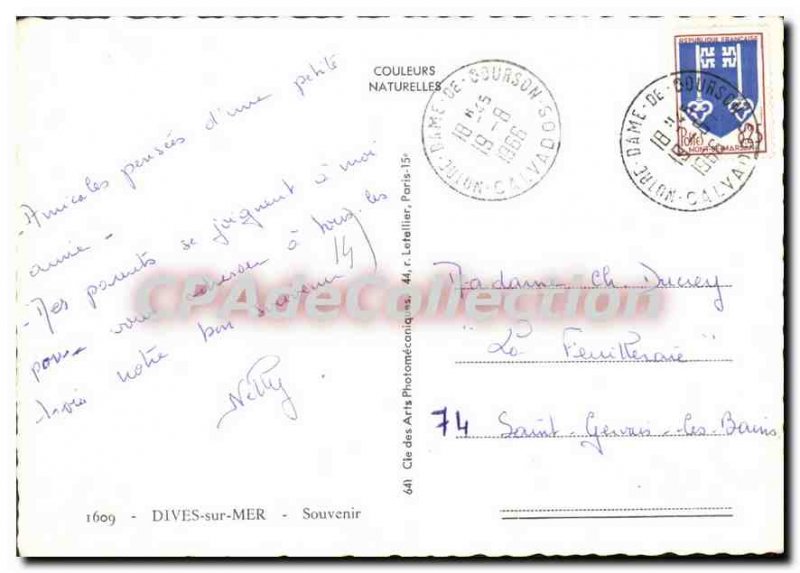 COULEURS
NATURELLES
NOTRE-DAME-DE-COURSON-CALVADOS
18 H 45
19 - 8
1966
RÉPUBLIQUE FRANÇAISE
Postes 0.25
MONT-DE-MARSAN
NOTRE-DAME-DE-COURSON-CALVADOS
18 H 45
19 - 8
1966
- Amicales pensées d'une petite
amie -
- Mes parents se joignent à moi
pour vous adresser à tous les
trois notre bon souvenir
14)
Nelly.
641 Cie des Arts Photomécaniques, 44, r. Letellier, Paris-15e
Madame Ch. Ducrey
"La Feuilleraie"
74 Saint-Gervais-les-Bains
CPAdeCollection
1609 - DIVES-sur-MER - Souvenir